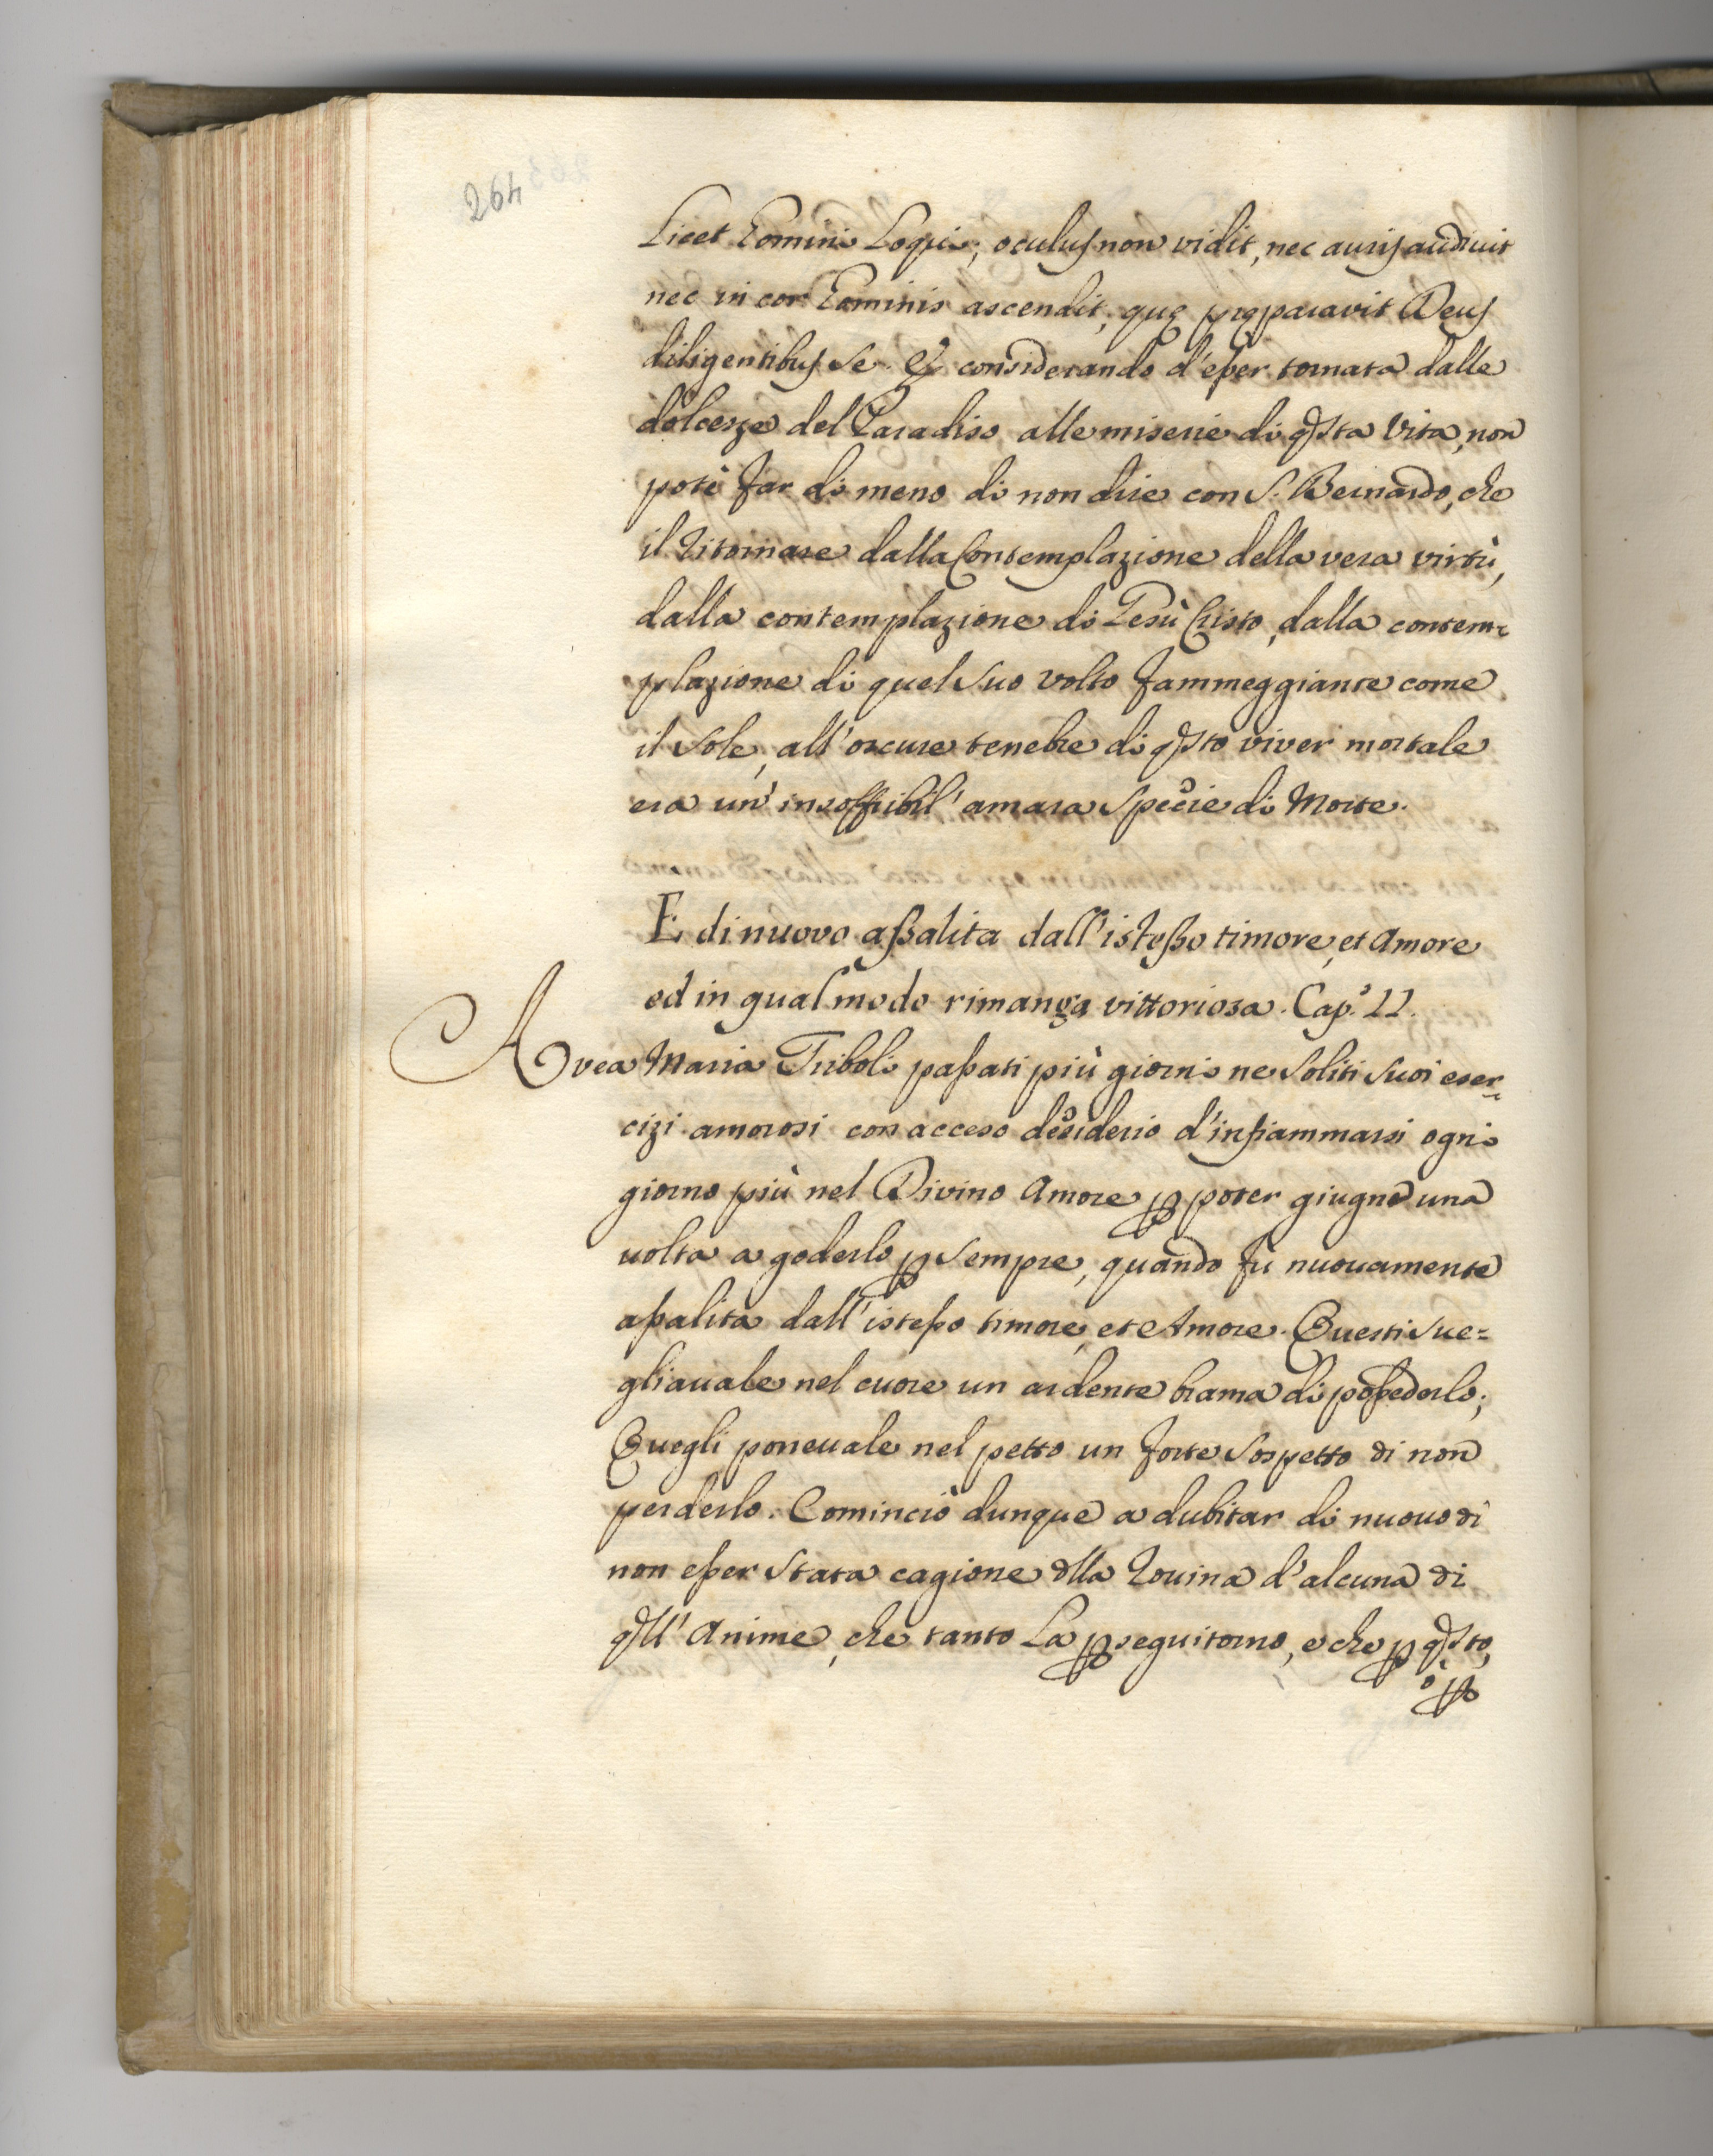 264
Licet homini Loqui; oculus non vidit, nec auris audivit
nec in cor hominis ascendit, quę pręparavit Deus
diligentibus se. E considerando d'esser tornata dalle
dolcezze del Paradiso alle miserie di qsta vita, non
potè far di meno di non dire con S. Bernardo, che
il ritornare dalla Contemplazione della vera virtù,
dalla contemplazione di Gesù Cristo, dalla contem-
plazione di quel suo volto fiammeggiante come
il sole, all'oscure tenebre di qsto viver mortale
era un' insoffribil' amara specie di Morte.
E di nuovo assalita dall'istesso timore, et Amore
ed in qual modo rimanga vittoriosa. Cap.o 11.
Avea Maria Triboli passati più giorni ne soliti suoi eser-
cizi amorosi con acceso desiderio d'infiammarsi ogni
giorno più nel Divino Amore p poter giugne una
uolta a goderlo p sempre, quando fù nuouamente
assalita dall'istesso timore, et Amore. Questi sue=
gliauale nel cuore un ardente brama di possederlo;
Quegli poneuale nel petto un forte sospetto di non
perderlo. Cominciò dunque a dubitar di nuouo di
non esser stata cagione dlla rouina d'alcuna di
qll' Anime, che tanto La pseguitorno, e che p qsto,